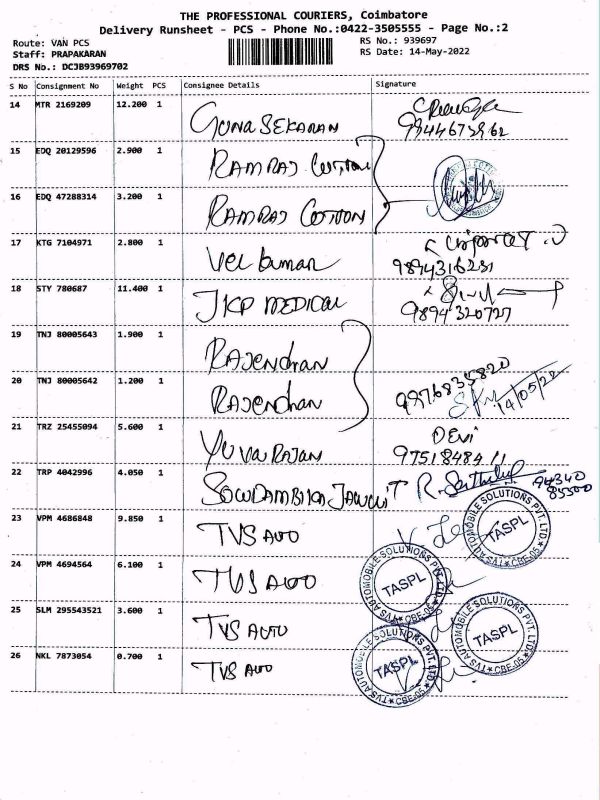 THE PROFESSIONAL COURIERS, Coimbatore
Delivery Runsheet - PCS - Phone No.:0422-3505555 - Page No.:2
Route: VAN PCS
RS No.: 939697
Staff: PRAPAKARAN
RS Date: 14-May-2022
DRS No.: DCJB93969702
S No Consignment No Weight PCS Consignee Details Signature
14 MTR 2169209 12.200 1 GUNASEKARAN
9944673962
15 EDQ 20129596 2.900 1 RAMRAJ COTTON
16 EDQ 47288314 3.200 1 RAMRAJ COTTON
17 KTG 7104971 2.800 1 Vel kumar
9894316231
18 STY 780687 11.400 1 JKP MEDICAL
9894320727
19 TNJ 80005643 1.900 1 RAJENdran
20 TNJ 80005642 1.200 1 RAJENdran 9976835820
14/05/22
21 TRZ 25455094 5.600 1 YUVARAJAN DEVI
9751848411
22 TRP 4042996 4.050 1 SOWDAMBIKA R. Senthil 94340
85500
23 VPM 4686848 9.850 1 TVS AUTO
TVS AUTOMOBILE SOLUTIONS PVT. LTD. * CBE-05 *
TASPL
24 VPM 4694564 6.100 1 TVS AUTO
TVS AUTOMOBILE SOLUTIONS PVT. LTD. * CBE-05 *
TASPL
25 SLM 295543521 3.600 1 TVS AUTO
TVS AUTOMOBILE SOLUTIONS PVT. LTD. * CBE-05 *
TASPL
26 NKL 7873054 0.700 1 TVS AUTO
TVS AUTOMOBILE SOLUTIONS PVT. LTD. * CBE-05 *
TASPL